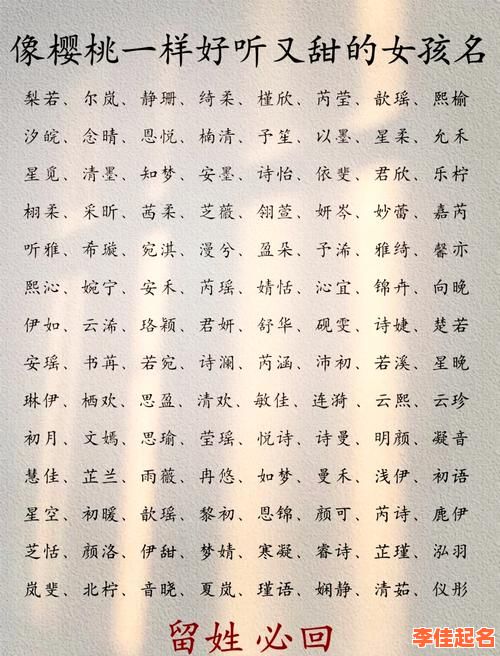 像樱桃一样好听又甜的女孩名
梨若、尔岚、静珊、绮柔、槿欣、芮莹、歆瑶、熙榆
汐皖、念晴、恩悦、楠清、予笙、以墨、星柔、允禾
星觅、清墨、知梦、安墨、诗怡、依斐、君欣、乐柠
栩柔、采昕、茜柔、芝薇、翎萱、妍岑、妙蕾、嘉芮
听雅、希璇、宛淇、漫兮、盈朵、予浠、雅绮、馨亦
熙沁、婉宁、安禾、芮瑶、婧恬、沁宜、锦卉、向晚
伊如、云浠、珞颖、君妍、舒华、砚雯、诗婕、楚若
安瑶、书苒、若宛、诗澜、芮涵、沛初、若溪、星晚
琳伊、栖欢、思盈、清欢、敏佳、连漪、云熙、云珍
初月、文嫣、思瑜、莹瑶、悦诗、诗曼、明颜、凝音
慧佳、芷兰、雨薇、冉悠、如梦、曼禾、浅伊、初语
星空、初暖、歆瑶、黎初、恩锦、颜可、芮诗、鹿伊
芝恬、颜洛、伊甜、梦婧、寒凝、睿诗、芷瑾、泓羽
岚斐、北柠、音晓、夏岚、瑾语、娴静、清茹、仪彤
留姓 必回
李佳起名